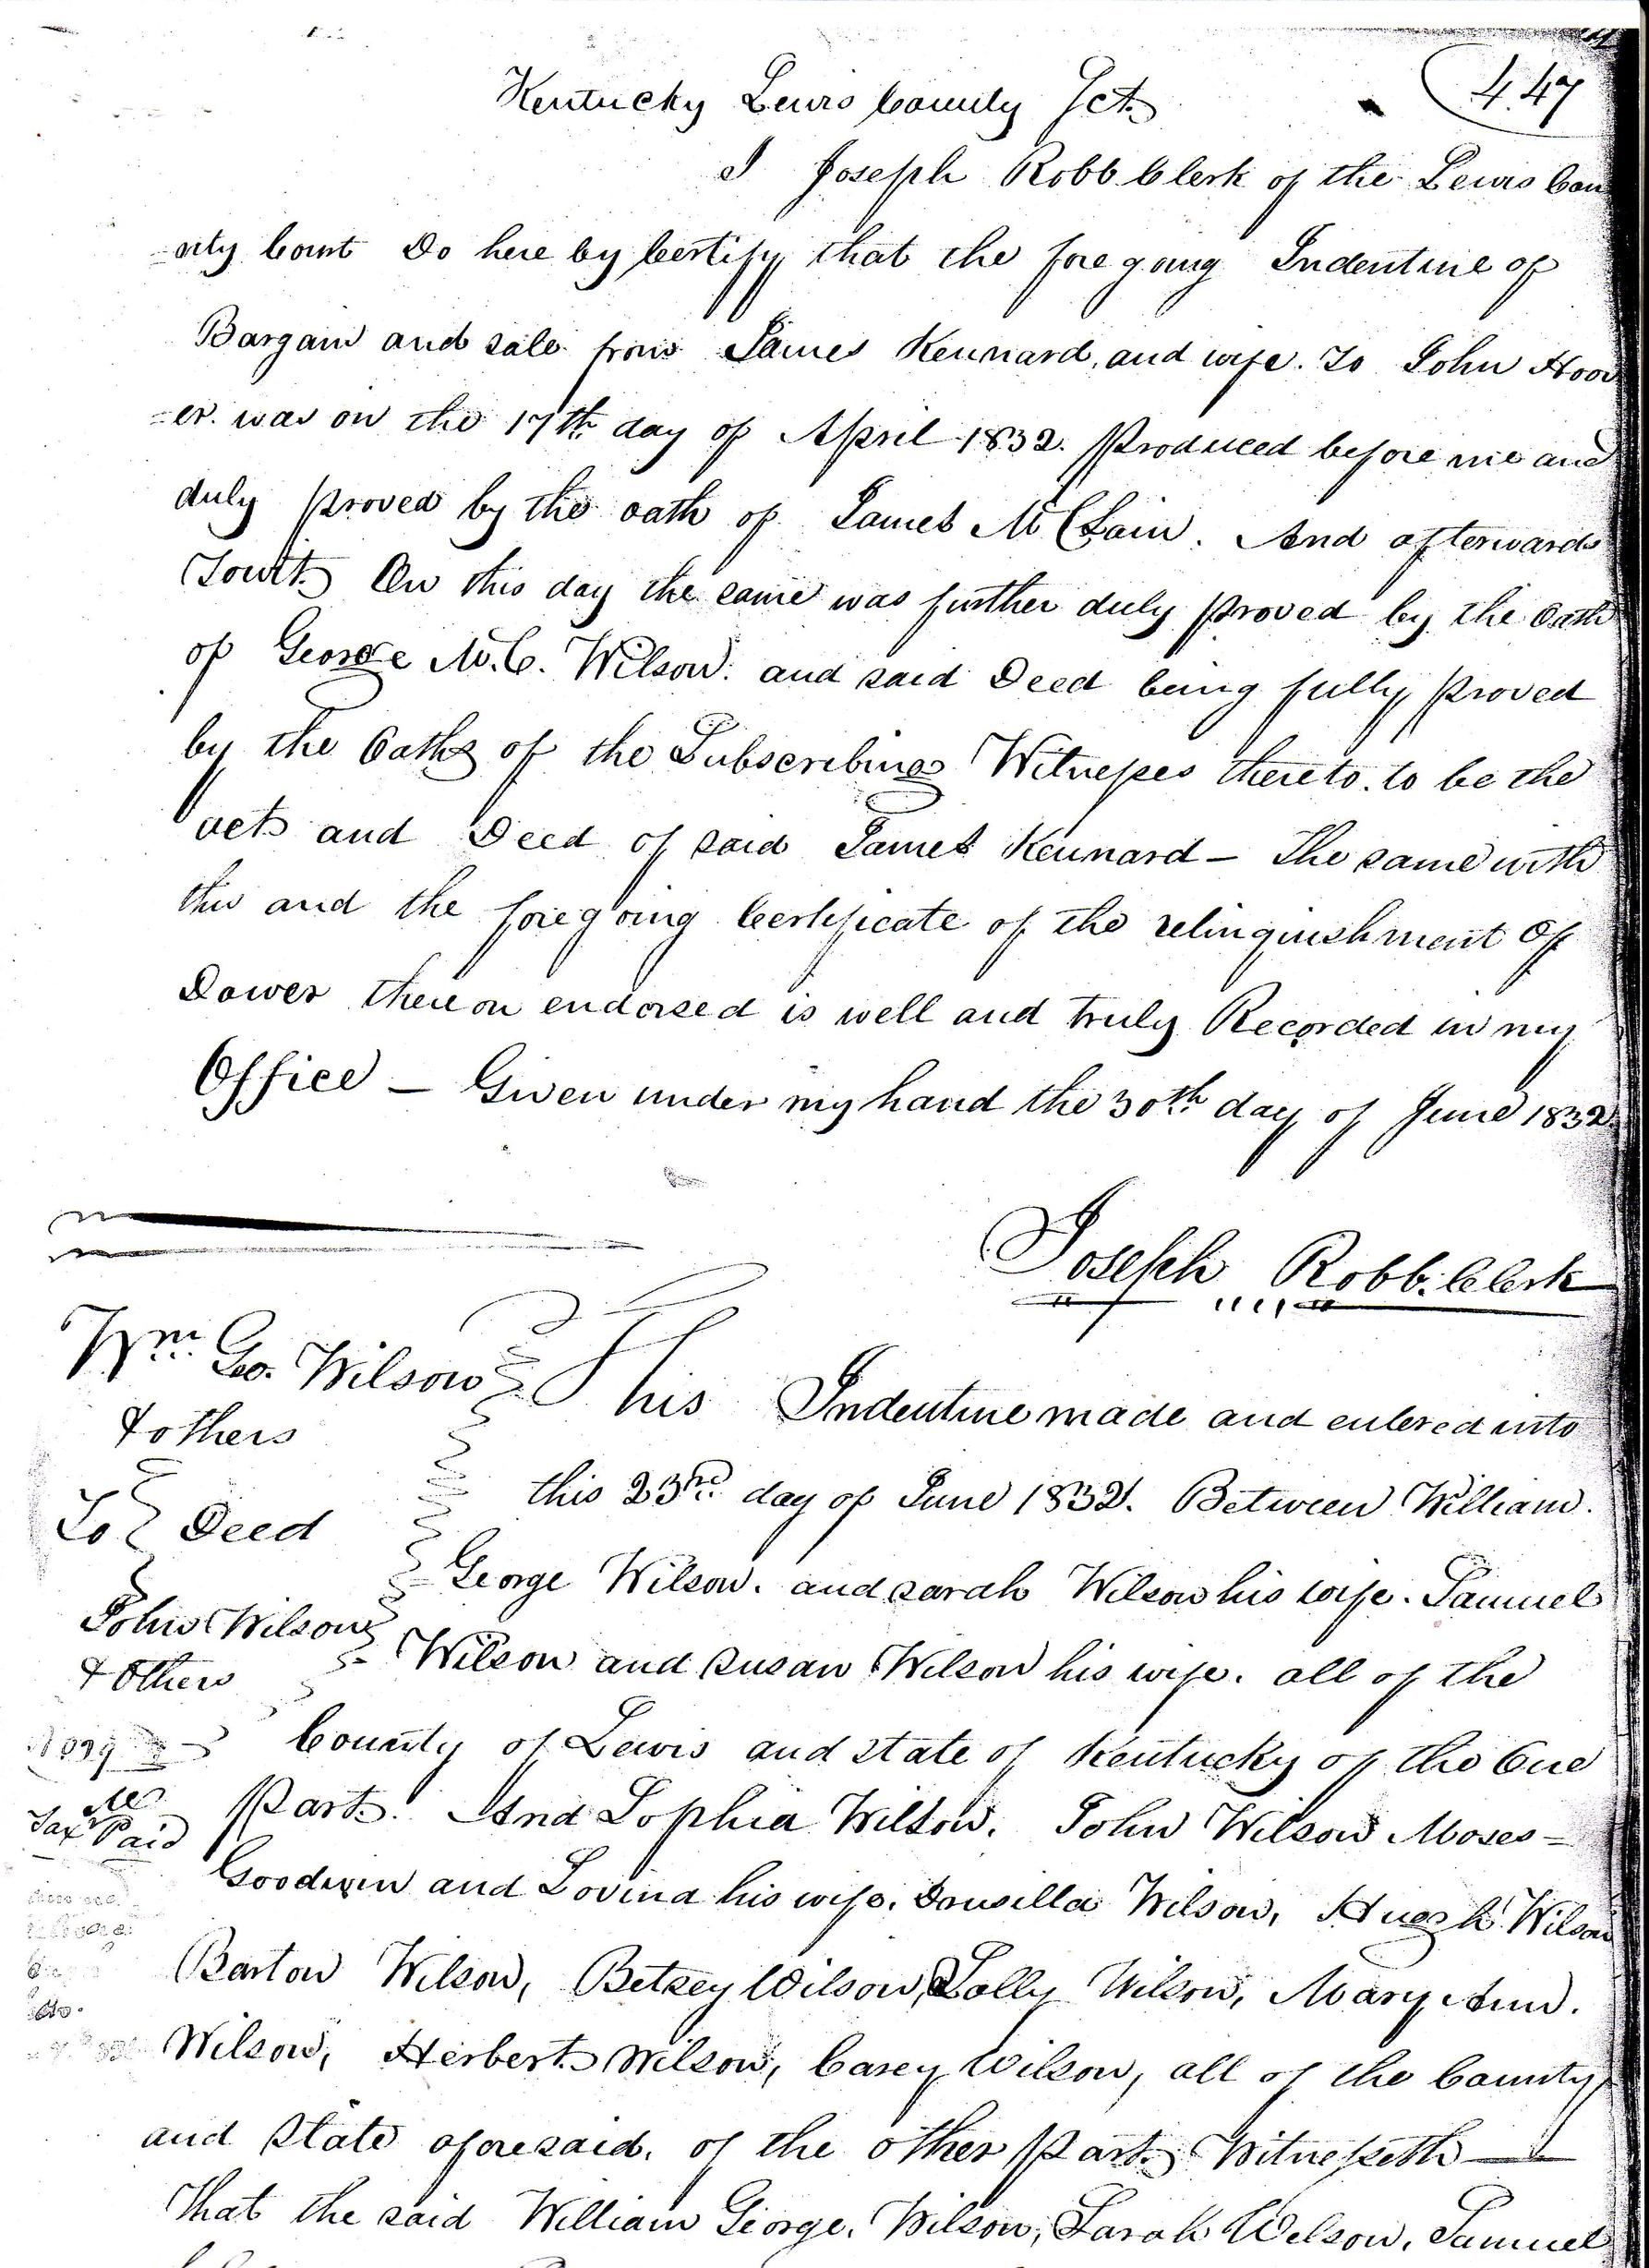 447
Kentucky Lewis County Sct.
I Joseph Robb Clerk of the Lewis Cou
-nty Court Do here by Certify that the fore going Indenture of
Bargain and sale from James Kennard, and wife. To John Hoov
-er. was on the 17th day of April 1832. Produced before me and
duly proved by the oath of James McClain. And afterwards
Towit. On this day the same was further duly proved by the Oath
of George M.C. Wilson. and said Deed being fully proved
by the Oaths of the Subscribing Witnesses thereto. to be the
act and Deed of said James Kennard — The same with
this and the foregoing Certificate of the relinquishment of
Dower thereon endorsed is well and truly Recorded in my
Office — Given under my hand the 30th day of June 1832.
Joseph Robb. Clerk
Wm. Geo. Wilson
& others
To Deed
John Wilson
& Others
Tax Paid
This Indenture made and entered into
this 23rd. day of June 1832. Between William.
George Wilson. and Sarah Wilson his wife. Samuel
Wilson and Susan Wilson his wife. all of the
County of Lewis and State of Kentucky of the One
Part. And Sophia Wilson. John Wilson Moses =
Goodwin and Lovina his wife. Drusilla Wilson, Hugh Wilson
Barton Wilson, Betsey Wilson, Polly Wilson, Mary Ann.
Wilson, Herbert Wilson, Casey Wilson, all of the County
and State aforesaid. of the other Part. Witnesseth —
That the said William George. Wilson, Sarah Wilson. Samuel